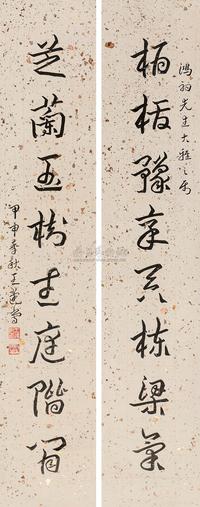 鴻翔先生大雅之屬
豫章具棟梁氣
芝蘭玉樹生庭階間
甲申季秋王蘧常